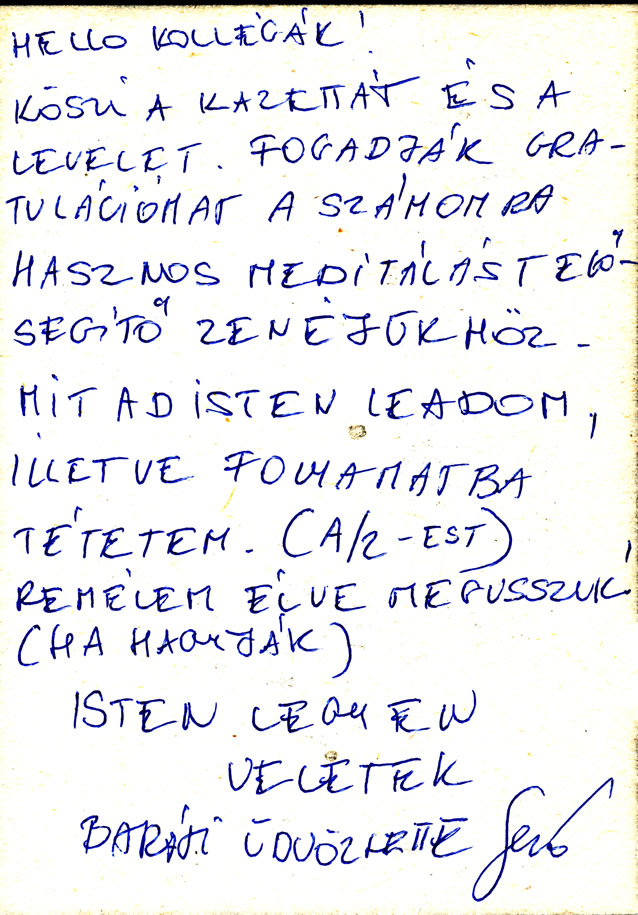 HELLO KOLLÉGÁK!
KÖSZI A KAZETTÁT ÉS A
LEVELET. FOGADJÁK GRA-
TULÁCIÓMAT A SZÁMOMRA
HASZNOS MEDITÁLÁST ELŐ-
SEGÍTŐ ZENÉJÜKHÖZ -
MIT AD ISTEN LEADOM,
ILLETVE FOLYAMATBA
TÉTETEM. (A/2-EST)
REMÉLEM ÉLVE MEGUSSZUK!
(HA HAGYJÁK)
ISTEN LEGYEN
VELETEK
BARÁTI ÜDVÖZLETTE